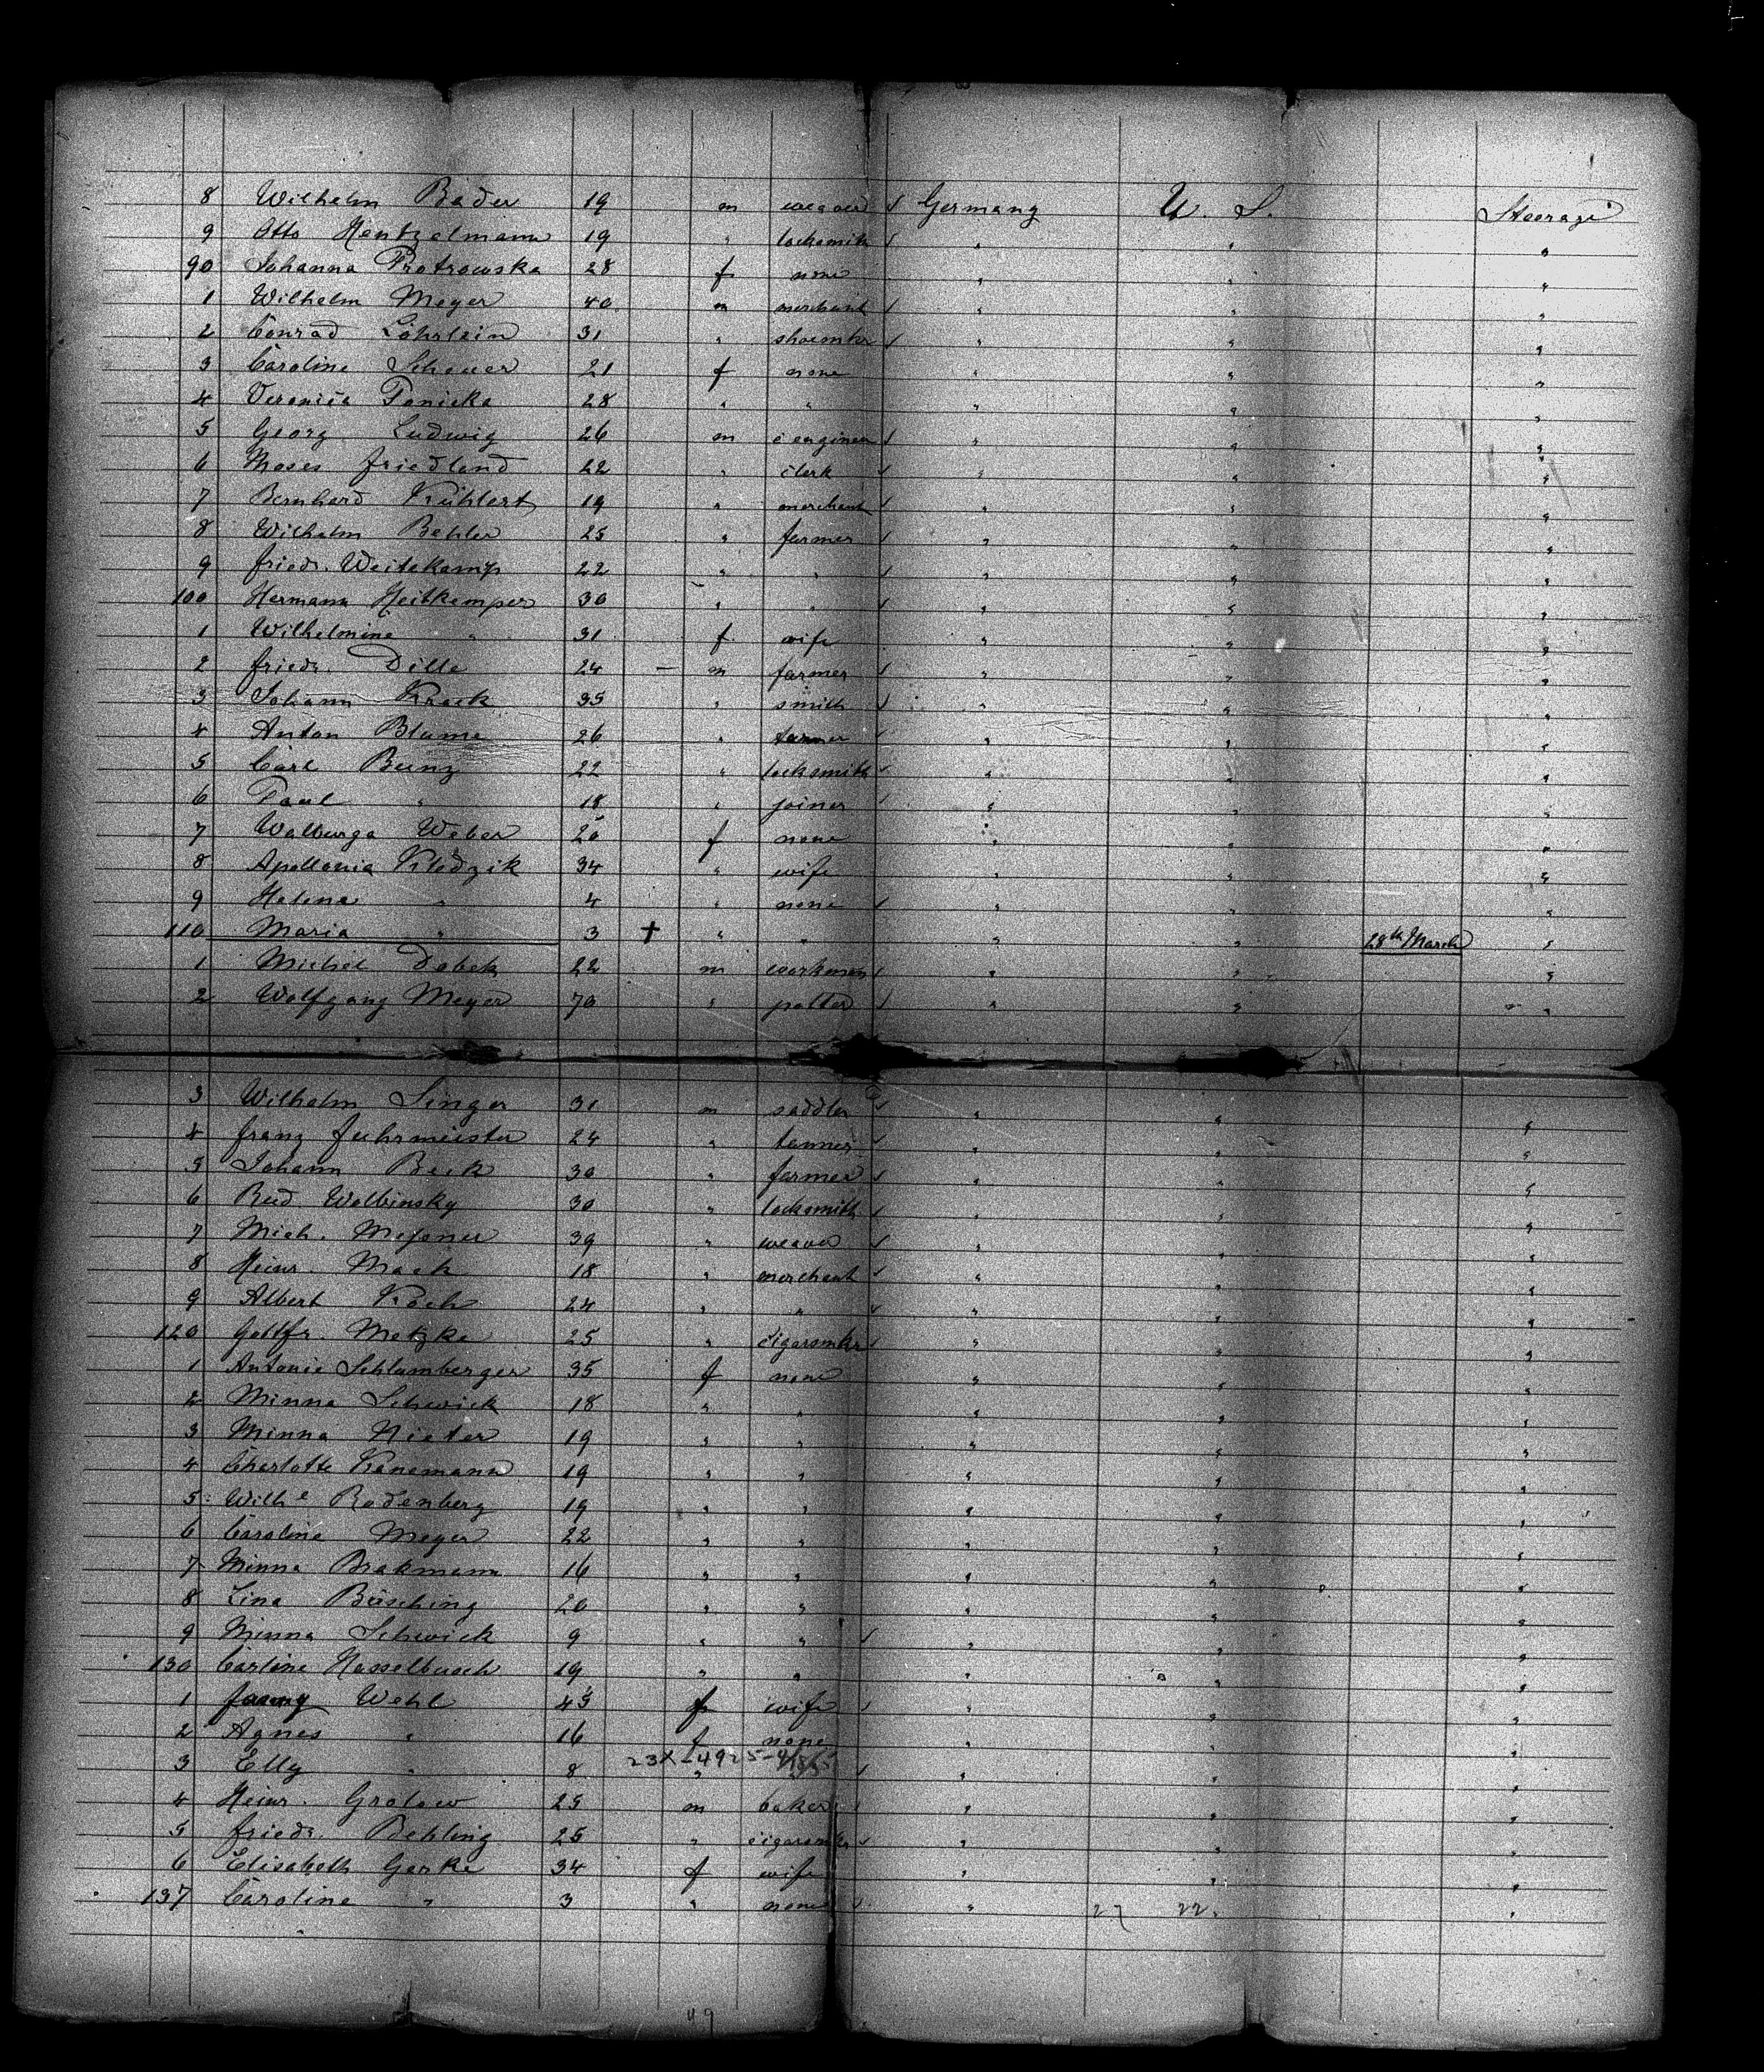 8 Wilhelm Bader 19 m weaver ✓ Germany U. S. Steerage
9 Otto Hentzelmann 19 " locksmith ✓ " " "
90 Johanna Piotrowska 28 f none " " "
1 Wilhelm Meyer 40 m merchant ✓ " " "
2 Conrad Löhrlein 31 " shoemkr ✓ " " "
3 Caroline Scheuer 21 f none " " "
4 Veronica Panicka 28 " " " " "
5 Georg Ludwig 26 m c engineer ✓ " " "
6 Moses Friedland 22 " clerk ✓ " " "
7 Bernhard Kühlert 19 " merchant ✓ " " "
8 Wilhelm Behler 25 " farmer ✓ " " "
9 Friedr. Weitekamp 22 " " ✓ " " "
100 Hermann Heitkemper 30 " " ✓ " " "
1 Wilhelmine " 31 f wife " " "
2 Friedr. Dille 24 – m farmer ✓ " " "
3 Johann Krack 35 " smith ✓ " " "
4 Anton Blume 26 " ✓ " " "
5 Carl Bunz 22 " locksmith ✓ " " "
6 Paul " 18 " joiner ✓ " " "
7 Walburga Weber 20 f none " " "
8 Apollonia Klodzik 34 " wife " " "
9 Helene " 4 " none ✓ " " "
110 Maria " 3 † " " " " 28th March "
1 Michel Dabek 22 m workman ✓ " " "
2 Wolfgang Meyer 70 " potter ✓ " " "
3 Wilhelm Singer 31 m saddler ✓ " " "
4 Franz Fuhrmeister 24 " tanner ✓ " " "
5 Johann Beck 30 " farmer ✓ " " "
6 Rud Wolbinsky 30 " locksmith ✓ " " "
7 Mich. Meßner 39 " weaver ✓ " " "
8 Heinr. Mack 18 " merchant ✓ " " "
9 Albert Koch 24 " " ✓ " " "
120 Gottfr. Metzke 25 " cigarmkr ✓ " " "
1 Antonie Schlumberger 35 f none " " "
2 Minna Schwick 18 " " " " "
3 Minna Nieter 19 " " " " "
4 Charlotte Kanemann 19 " " " " "
5 Wilhe Rodenberg 19 " " " " "
6 Caroline Meyer 22 " " " " "
7 Minna Brakmann 16 " " " " "
8 Lina Büsching 20 " " " " "
9 Minna Schwick 9 " " ✓ " " "
130 Carline Hasselbusch 19 " " " " "
1 Fanny Wehl 45 f wife ✓ " " "
2 Agnes " 16 f none " " "
3 Elly " 8 " " ✓ " " "
4 Heinr. Grolow 25 m baker ✓ " " "
5 Friedr. Behling 25 " cigarmkr ✓ " " "
6 Elisabeth Gerke 34 f wife " " "
137 Caroline " 3 " none ✓ " 27 22 " "
49